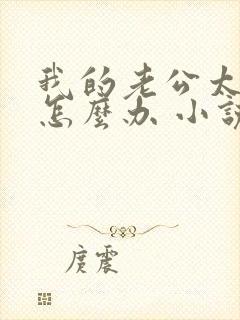 我的老公太
怎麼办 小說
庹震